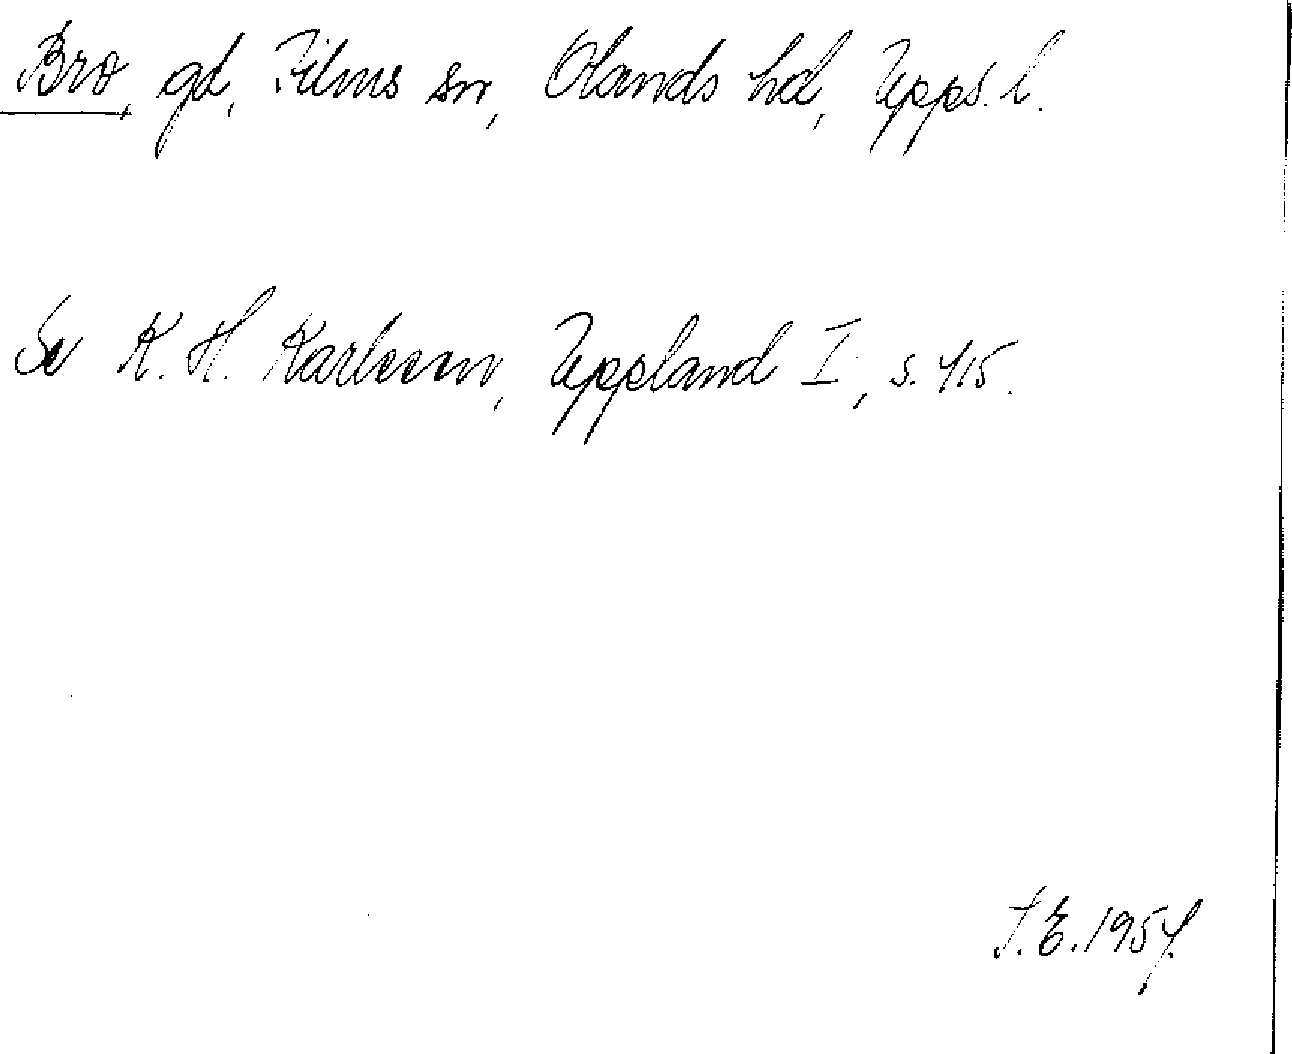 Bro, gd, Films sn, Olands hd, Upps. l.
Se K. H. Karlsson, Uppland I, s. 415.
S.E. 1954.